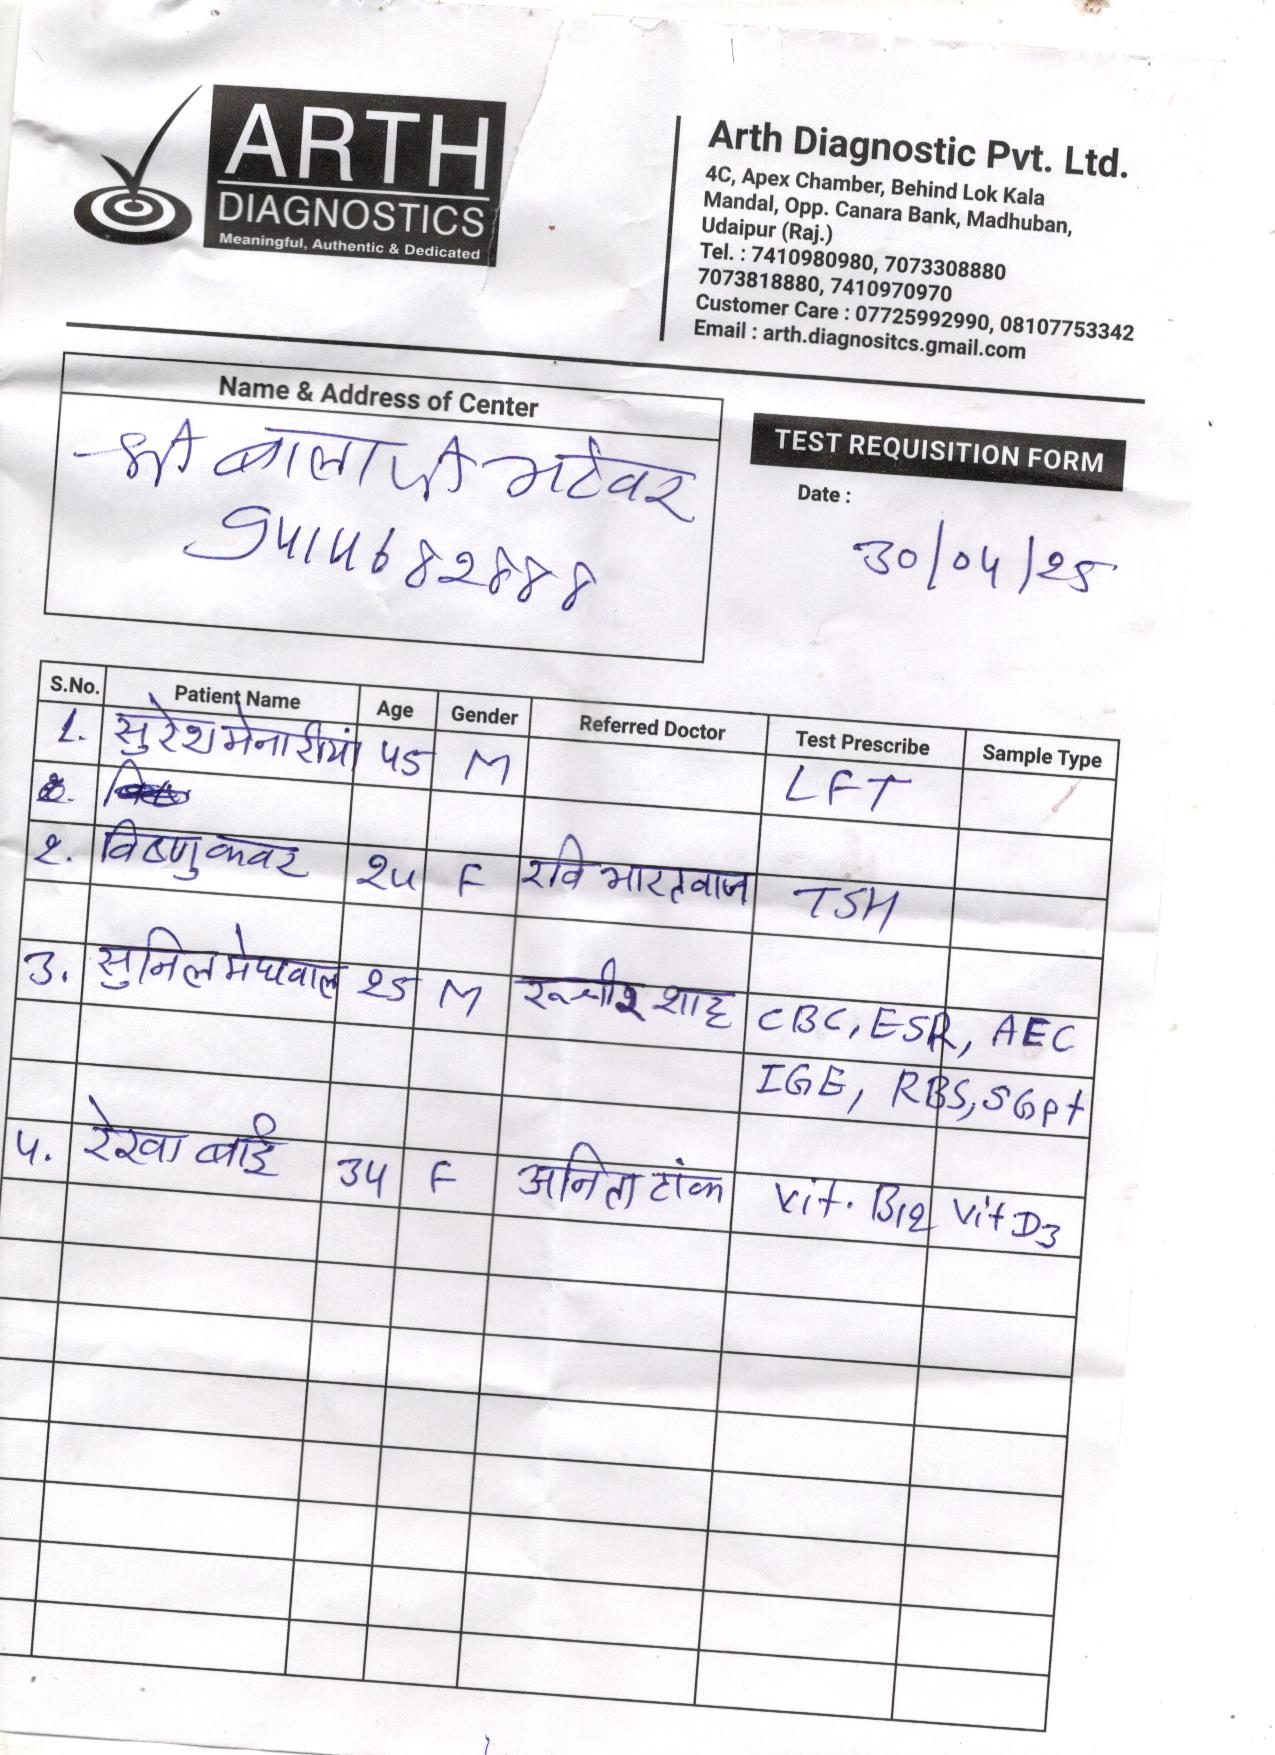 ARTH
DIAGNOSTICS
Meaningful, Authentic & Dedicated
Arth Diagnostic Pvt. Ltd.
4C, Apex Chamber, Behind Lok Kala
Mandal, Opp. Canara Bank, Madhuban,
Udaipur (Raj.)
Tel. : 7410980980, 7073308880
7073818880, 7410970970
Customer Care : 07725992990, 08107753342
Email : arth.diagnositcs.gmail.com
Name & Address of Center
श्री बालाजी भटेवर
9414682888
TEST REQUISITION FORM
Date :
30/04/25
S.No. Patient Name Age Gender Referred Doctor Test Prescribe Sample Type
1. सुरेश मेनारीयां 45 M LFT
2.
2. विष्णु कवर 24 F रवि भारतवाज TSH
3. सुनिल मेघवाल 25 M शाह CBC, ESR, AEC
IGE, RBS, SGpt
4. रेखा बाई 34 F अनिता टांक Vit. B12 Vit D3